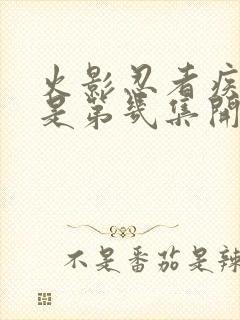 火影忍者疾
是第几集開
不是番茄是辣